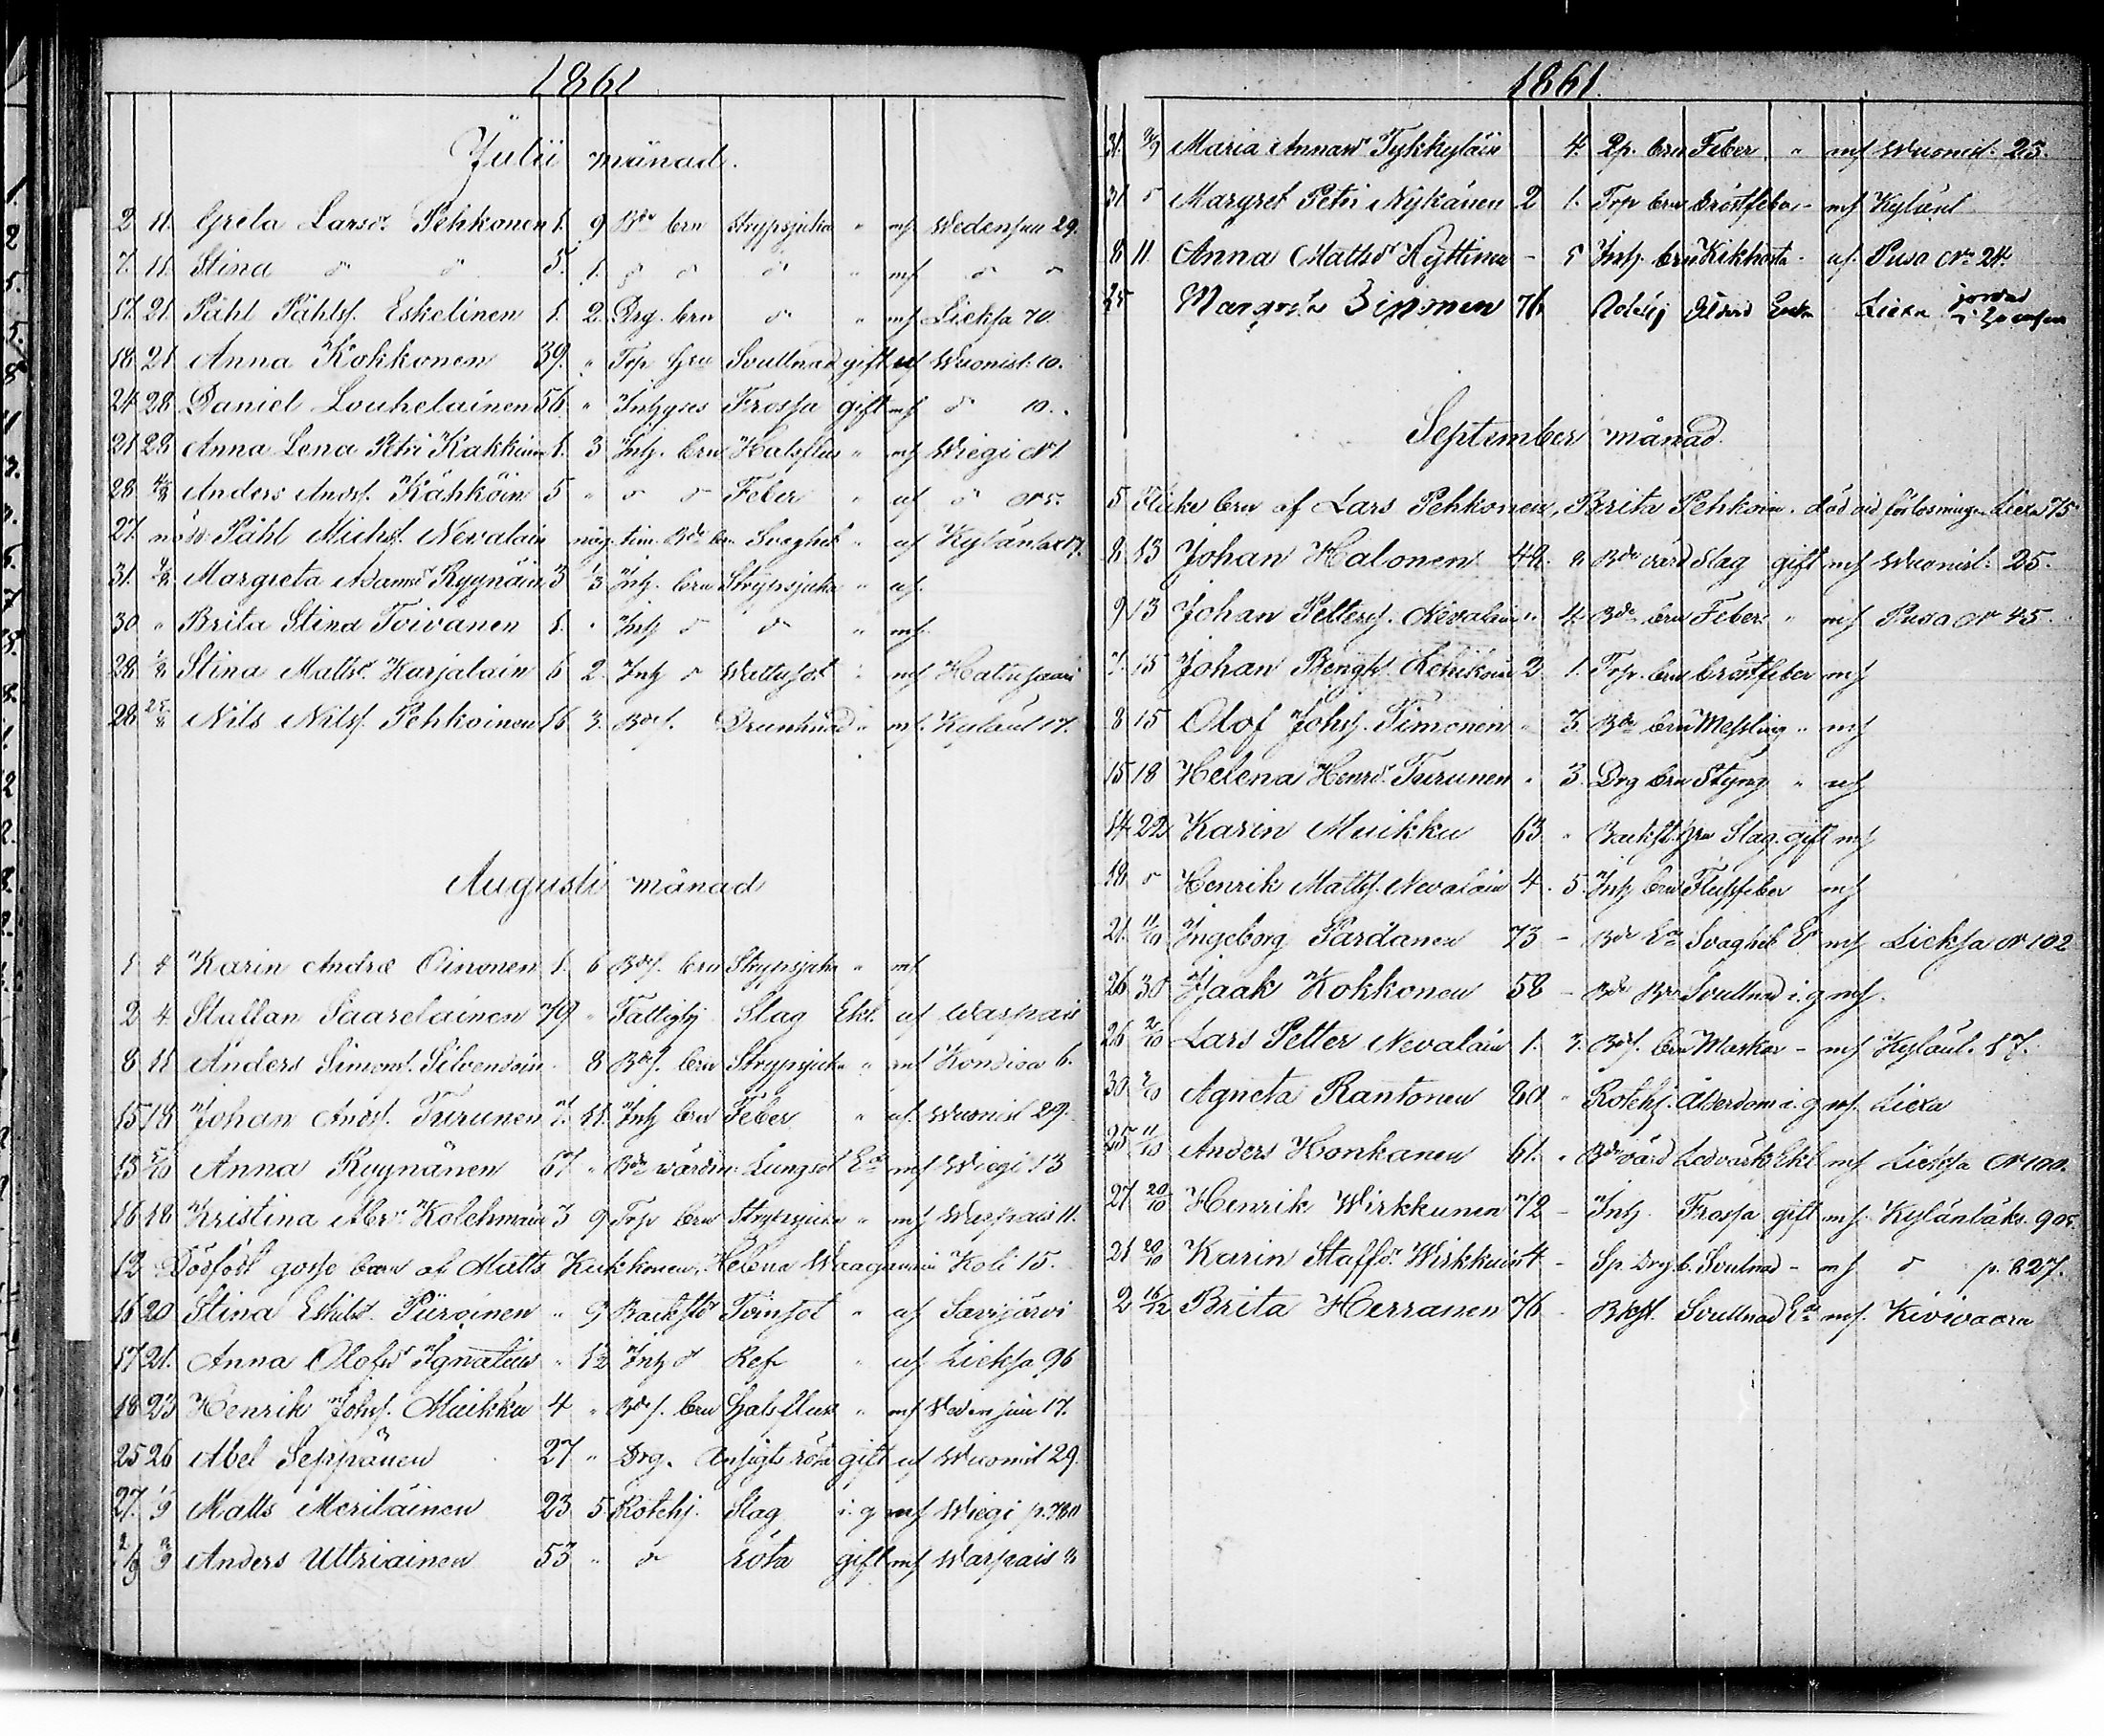 1861
Julii månad.
2 11. Greta Larsd. Pehkonen 1. 9 Bde brn Strypsjuka " mf Wedensuu 29.
7. 11. Stina d d 5. 1. d d d " mf d d
17. 21 Påhl Påhlsf. Eskelinen 1. 2. Drg. brn d " mf Lieksa 70.
18. 21 Anna Kokkonen 39. " Trp hru Svullnad gift uf Wuonisl: 10.
24 28 Daniel Louhelainen 56. " Inhyses Frossa gift mf d 10.
21 28 Anna Lena Petri Kakkinen 1. 3 Inh. brn Halsfluss " mf Wiegi N 1
28. 4/8 Anders Andsf. Kähköin 5 " d d Feber " uf d N 5.
27. nöd. Påhl Michsf. Nevalain någ. tim. Bde brn Svaghet " uf Kylänlax 17.
31. 4/8 Margreta Adamsd Ryynäin 3 1/3 Inh. brn Strypsjuka " uf.
30 " Brita Stina Toivanen 1. " Inh d d " mf.
28. 1/8 Stina Mattsd. Karjalain 6 2. Inh d Wattusot " mf Hattusaari
28. 25/8 Nils Nilsf. Pehkoinen 16 3. Bdes. Drunknad " mf. Kylänl 17.
Augusti månad
1 4 Karin Andræ Oinonen 1. 6 Bdes. brn Strypsjuka " mf
2 4. Stallan Saarelainen 79 " Fattighj Slag Ekl. uf Warpais
8 11 Anders Simonsf. Silvendoin 8 Bdes. brn Strypsjuka " mf Kondiva 6.
15 18 Johan Andsf. Turunen 7. 11. Inh brn Feber " uf. Wuonisl 29.
13 Anna Ryynänen 67. " Bde wärdin: Lungsot Ea mf Wiegi 13
16 18 Kristina Abr. Kolehmain 3 9 Trp brn Strypsjuka " mf Warpais 11.
12 Dödfödt gosse barn af Matts Kukkonen, Helena Waaganinen Koli 15.
16 20 Stina Eskilsd. Piiroinen " 9 Backstd Tvinsot " uf Savijärvi
17 21. Anna Olofsd Ignatius " 1/2 Inh d Ref " uf Lieksa 96
18 23 Henrik Johsf. Muikku 4 " Bdes. brn halsfluss " mf Wedensuu 17.
25 26 Abel Seppänen 27 " Drg. Ansigtsröta gift uf Wuonisl 29.
27. 1/9 Matts Meriläinen 23 5. Rotehj. Slag i. g mf Wiegi p. 780
Anders Ultriainen 53 " d röta gift mf Warpais 8
1861.
31. Maria Annasd Tykkyläin 4. Sp. brn Feber " mf Wuonisl. 25.
31 d Margret Petri Nykänen 2 1. Trp brn bröstfeber - mf Kylänl
8 11. Anna Mattsd Hyttinen - 5 Inh. brn Kikhosta - uf. Pusa No 24.
25 Margreta Siponen 76 Rotehj Ålderd Enka Liexa jordad
September månad.
5 Flicke brn af Lars Pehkonen, Brita Pehkoin. död vid förlossningen Liexa 75
8 13 Johan Halonen 42. " Bde värd Slag gift mf Wuonisl: 25.
9 13 Johan Pettersf. Nevalain " 4. Bde brn Feber " mf Pusa N 45.
7. 15 Johan Bengtsf. Lehikoin 2 1. Trp. brn bröstfeber mf
8 15 Olof Johsf. Timonein " 3. Bde brn Messling " mf
15 18 Helena Henrsd. Turunen " 3. Drg brn Styng " uf
14 22 Karin Muikku 63 " Backst. hru Slag. gift mf
18 d Henrik Mattsf. Nevalain 4. 5. Inh brn Flussfeber mf
21. 11/10 Ingeborg Pardanen 73 - Bde Ea Svaghet E mf Lieksa N 102
26 30 Isaak Kokkonen 58 - Bde Bror Svullnad i. g mf.
26 2/10 Lars Petter Nevalain 1. 7. Bdes. brn Maskar - mf Kylänl. 17.
30. 2/10 Agneta Rantonen 80 " Rotehj. Ålderdom i. g mf. Liexa
25 11/10 Anders Honkanen 61. " Bde värd Ledvärk Ekl mf Lieksa N 100.
27. 20/10 Henrik Wirkkunen 72 - Inh. Frossa gift mf. Kylänlaks. 905.
21 20/10 Karin Staffsd. Wirkkuin 4 - Sp. Drg. b. Svulnad - mf d p. 827.
2 16/12 Brita Herranen 76 - Bkst. Svullnad Ea mf. Kivivaara